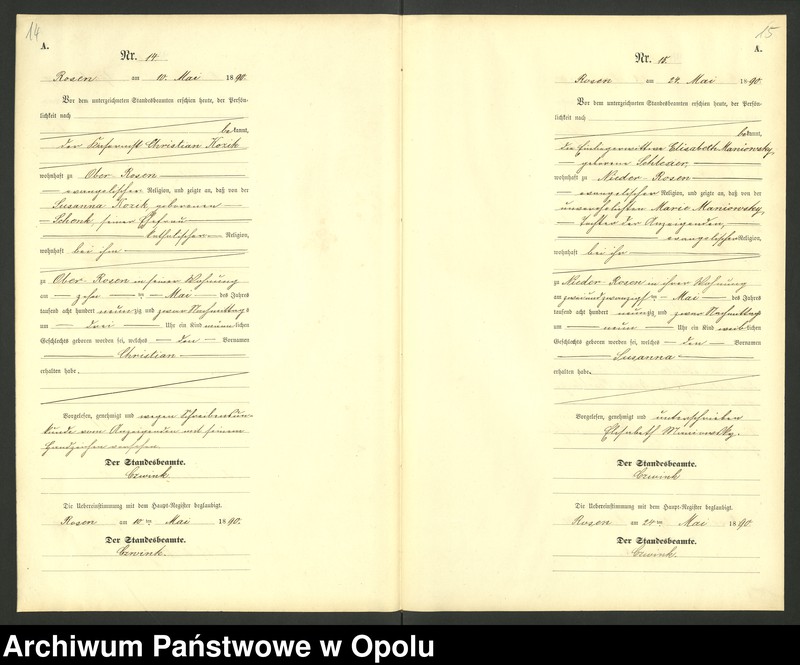 14
A.
Nr. 14.
Rosen am 10. Mai 1890.
Vor dem unterzeichneten Standesbeamten erschien heute, der Persön-
lichkeit nach
bekannt,
der Christian Kozik
wohnhaft zu Ober-Rosen
evangelischer Religion, und zeigte an, daß von der
Susanna Kozik geborenen
Schonk, seiner Ehefrau
katholischer Religion,
wohnhaft bei ihm
zu Ober-Rosen in seiner Wohnung
am zehn ten Mai des Jahres
tausend acht hundert neunzig und zwar Nachmittags
um drei Uhr ein Kind männlichen
Geschlechts geboren worden sei, welches den Vornamen
Christian
erhalten habe.
Vorgelesen, genehmigt und wegen Schreibensun-
kunde vom Anzeigenden mit seinem
Handzeichen versehen.
Der Standesbeamte.
Czwink
Die Uebereinstimmung mit dem Haupt-Register beglaubigt.
Rosen am 10 ten Mai 1890.
Der Standesbeamte.
Czwink.
15
A.
Nr. 15.
Rosen am 24. Mai 1890.
Vor dem unterzeichneten Standesbeamten erschien heute, der Persön-
lichkeit nach
bekannt,
die Einliegerwittwe Elisabeth Maniowsky,
geborene Schleder,
wohnhaft zu Nieder-Rosen
evangelischer Religion, und zeigte an, daß von der
unverehelichten Marie Maniowsky,
Tochter der Anzeigenden,
evangelischer Religion,
wohnhaft bei ihr
zu Nieder-Rosen in ihrer Wohnung
am zweiundzwanzigsten Mai des Jahres
tausend acht hundert neunzig und zwar Nachmittags
um neun Uhr ein Kind weiblichen
Geschlechts geboren worden sei, welches den Vornamen
Susanna
erhalten habe.
Vorgelesen, genehmigt und unterschrieben
Elisabeth Maniowsky.
Der Standesbeamte.
Czwink
Die Uebereinstimmung mit dem Haupt-Register beglaubigt.
Rosen am 24 ten Mai 1890
Der Standesbeamte.
Czwink.
Archiwum Państwowe w Opolu